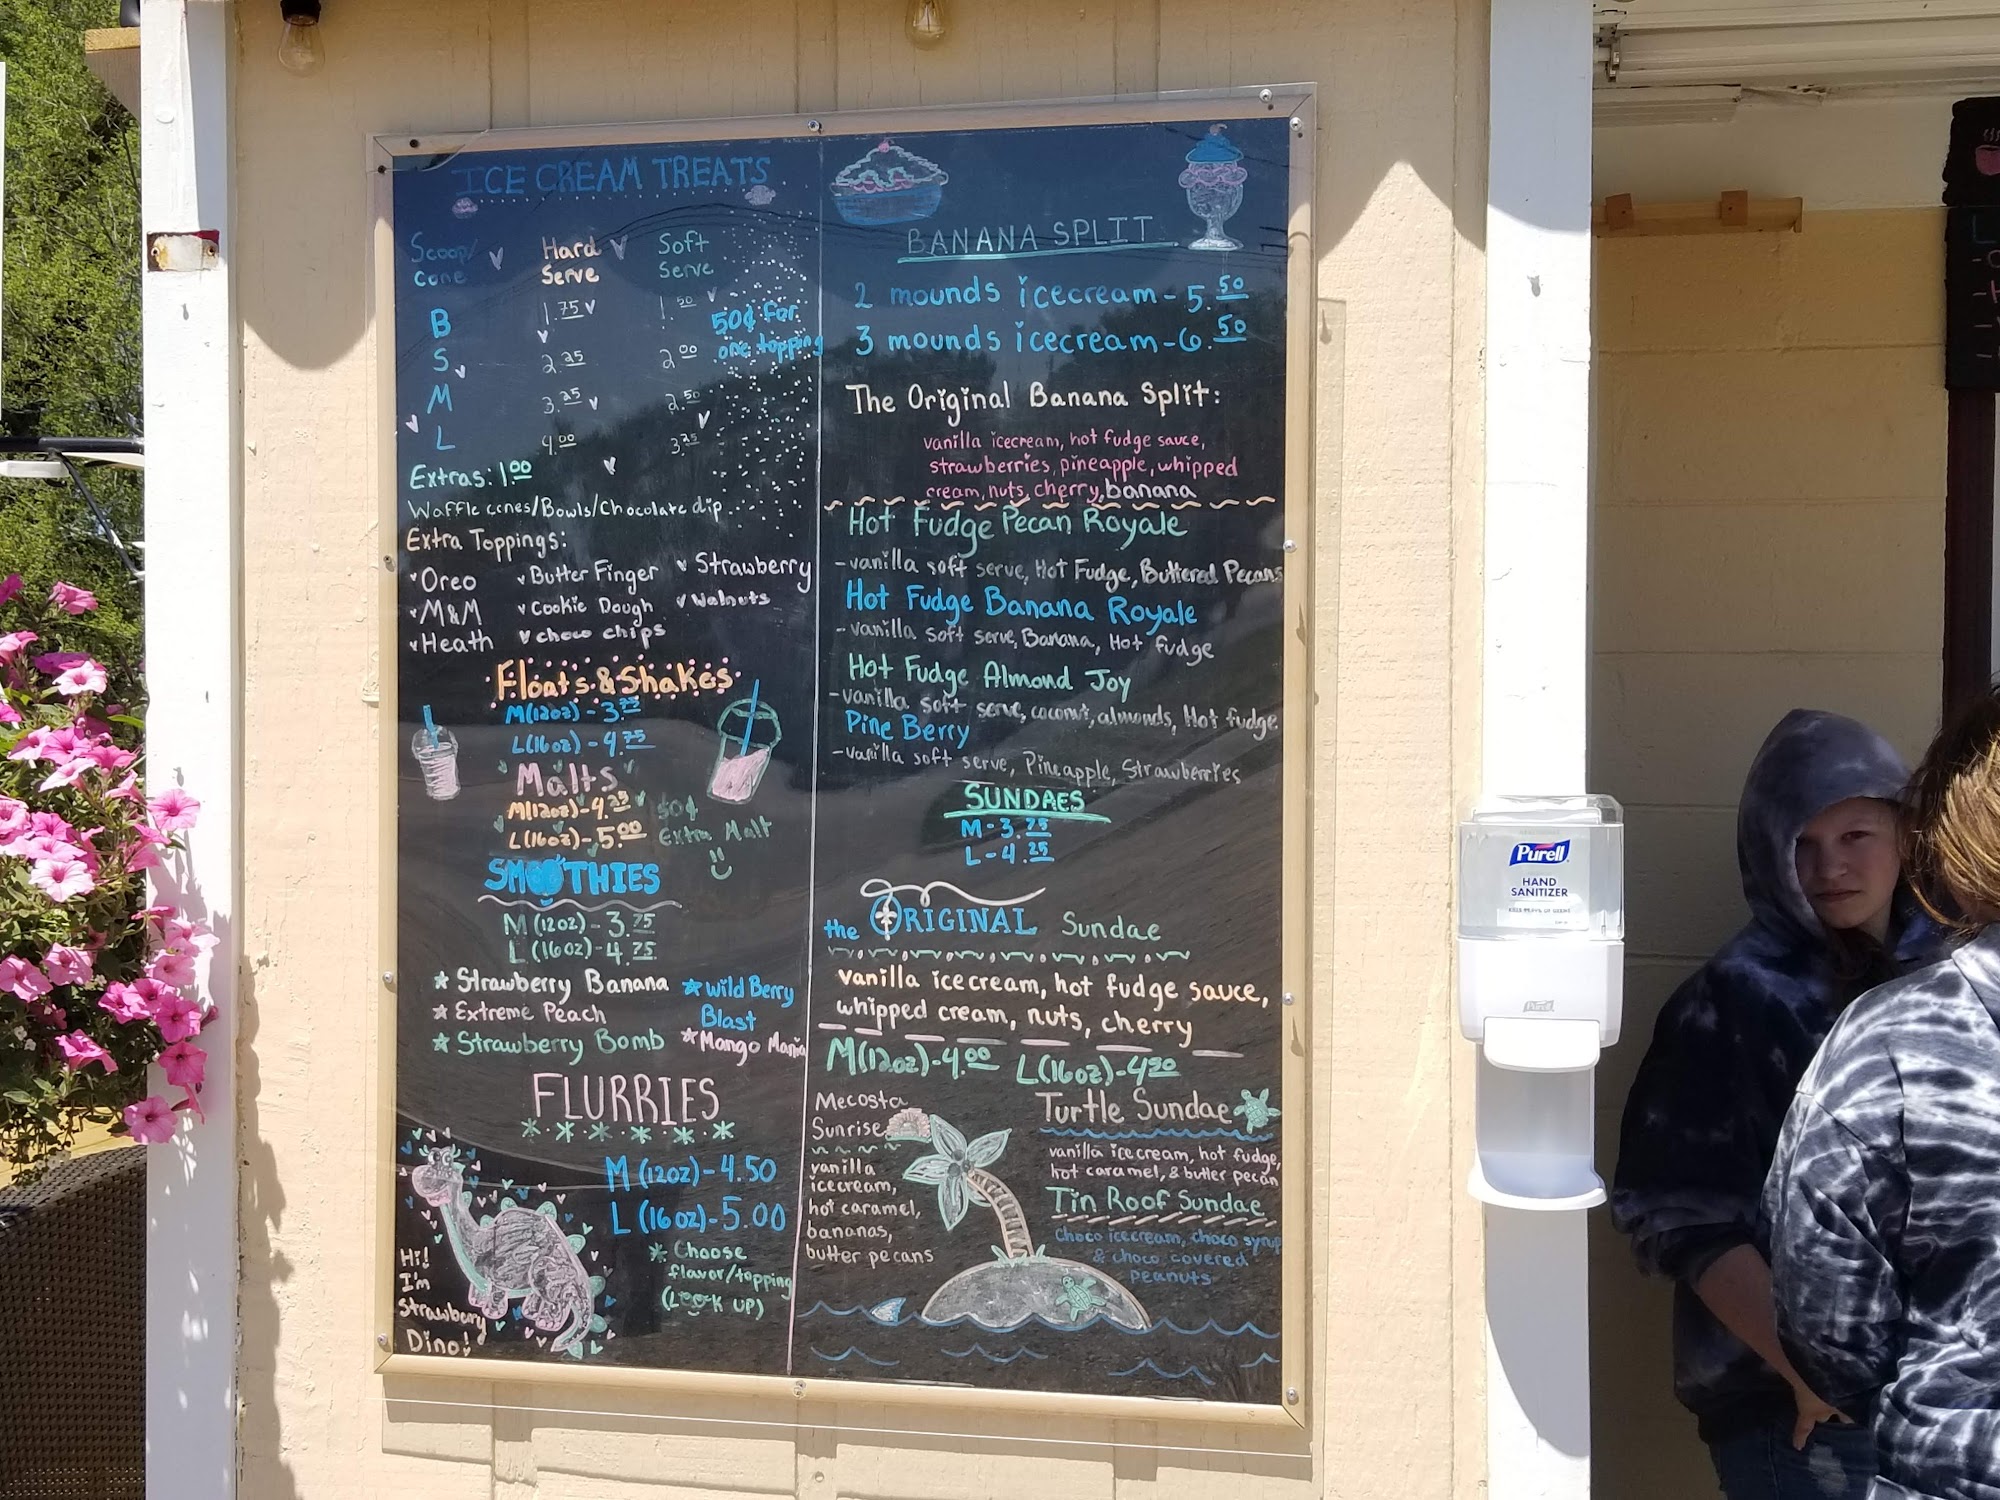 ICE CREAM TREATS
Scoop/ Hard Soft
Cone Serve Serve
B 1.75 1.50
S 2.25 2.00
M 3.25 2.50
L 4.00 3.25
50¢ for
one topping
Extras: 1.00
Waffle cones/Bowls/Chocolate dip
Extra Toppings:
Oreo Butter Finger Strawberry
M&M Cookie Dough Walnuts
Heath choco chips
Floats & Shakes
M(12oz) - 3.75
L(16oz) - 4.75
Malts
M(12oz) - 4.25
L(16oz) - 5.00
50¢
Extra Malt
SMOOTHIES
M (12oz) - 3.75
L (16oz) - 4.75
Strawberry Banana
Extreme Peach
Strawberry Bomb
Wild Berry
Blast
Mango Mania
FLURRIES
M (12oz) - 4.50
L (16oz) - 5.00
* Choose
flavor/topping
(Look UP)
Hi!
I'm
Strawberry
Dino!
BANANA SPLIT
2 mounds icecream - 5.50
3 mounds icecream - 6.50
The Original Banana Split:
vanilla icecream, hot fudge sauce,
strawberries, pineapple, whipped
cream, nuts, cherry, banana
Hot Fudge Pecan Royale
- vanilla soft serve, Hot Fudge, Buttered Pecans
Hot Fudge Banana Royale
- vanilla soft serve, Banana, Hot fudge
Hot Fudge Almond Joy
- vanilla soft serve, coconut, almonds, Hot fudge
Pine Berry
- vanilla soft serve, Pineapple, Strawberries
SUNDAES
M - 3.75
L - 4.25
the ORIGINAL Sundae
vanilla icecream, hot fudge sauce,
whipped cream, nuts, cherry
M(12oz) - 4.00 L(16oz) - 4.50
Mecosta
Sunrise
vanilla
icecream,
hot caramel,
bananas,
butter pecans
Turtle Sundae
vanilla icecream, hot fudge,
hot caramel, & butter pecan
Tin Roof Sundae
choco icecream, choco syrup
& choco covered
peanuts
Purell
HAND
SANITIZER